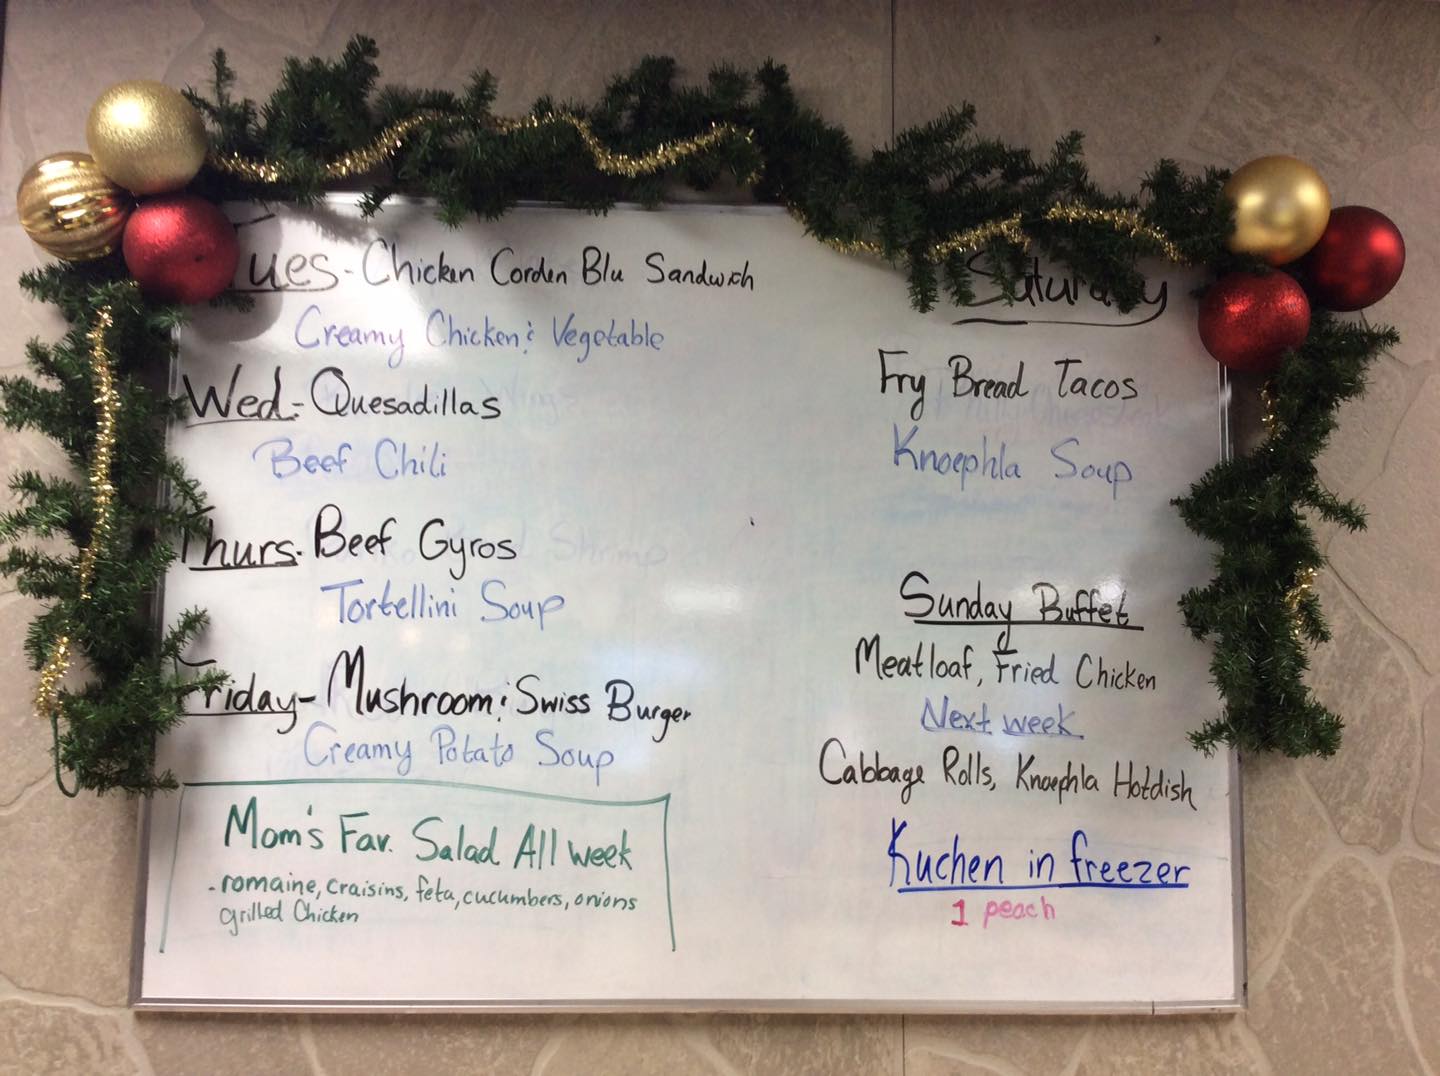 Tues - Chicken Corden Blu Sandwich
Creamy Chicken & Vegetable
Wed - Quesadillas
Beef Chili
Thurs - Beef Gyros
Tortellini Soup
Friday - Mushroom & Swiss Burger
Creamy Potato Soup
Mom's Fav. Salad All week
- romaine, craisins, feta, cucumbers, onions
grilled Chicken
Saturday
Fry Bread Tacos
Knoephla Soup
Sunday Buffet
Meatloaf, Fried Chicken
Next week
Cabbage Rolls, Knoephla Hotdish
Kuchen in freezer
1 peach